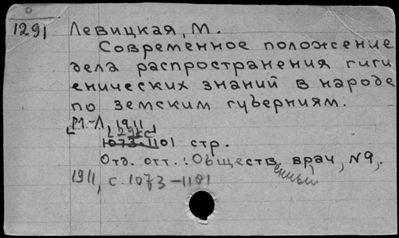 1291 Левицкая, М.
Современное положение
дела распространения гиги
енических знаний в народе
по земским губерниям.
М.-Л, 1911
[29 с]
1073-1101 стр.
Отд. отт.: Обществ енный врач, №9,
1911, с. 1073-1101